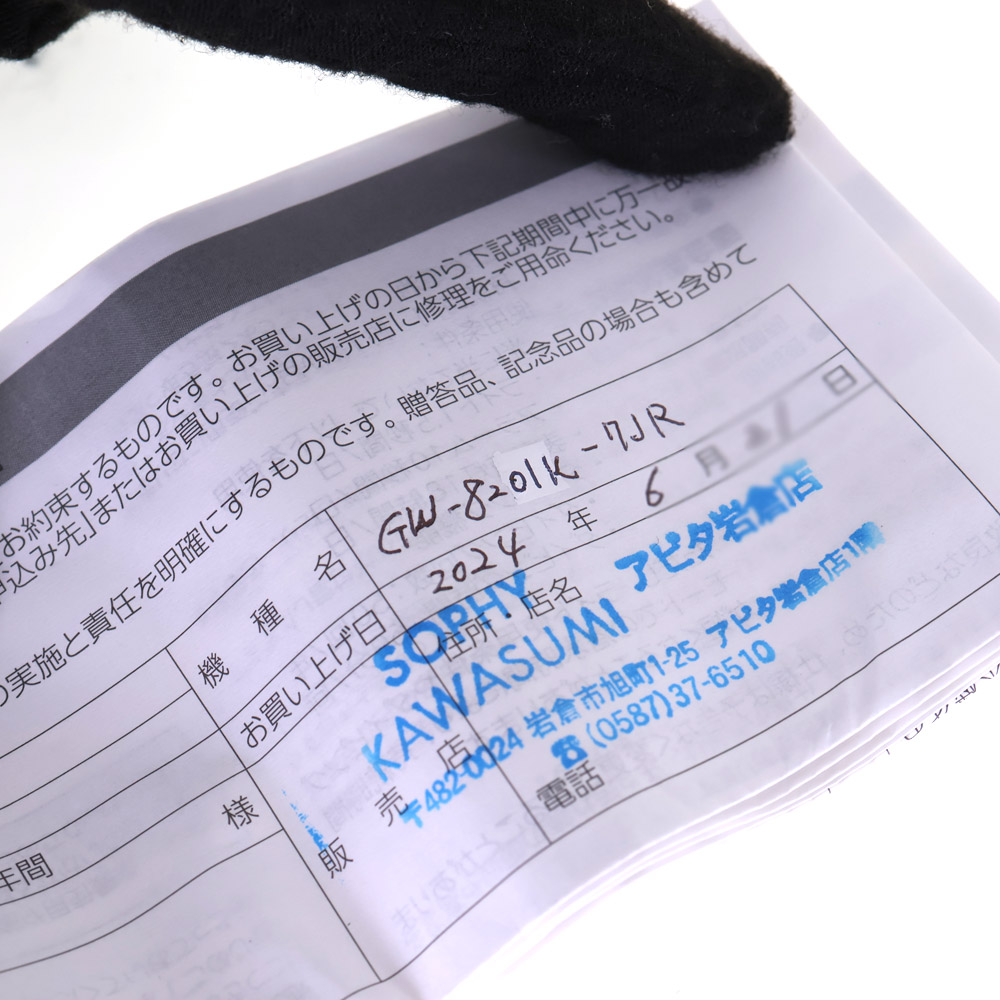 お約束するものです。お買い上げの日から下記期間中に万一故
申込み先」またはお買い上げの販売店に修理をご用命ください。
の実施と責任を明確にするものです。贈答品、記念品の場合も含めて
機種名 GW-8201K-7JR
お買い上げ日 2024年 6月 日
販売店 住所・店名
SOPHY アピタ岩倉店
KAWASUMI
〒482-0024 岩倉市旭町1-25 アピタ岩倉店1階
☎(0587)37-6510
電話
様
年間